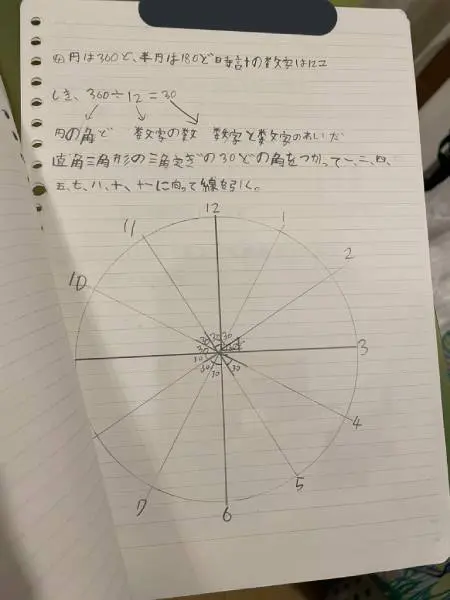 円は360ど、半月は180ど時計の数字は12コ
しき、360÷12=30
円の角ど 数字の数 数字と数字のあいだ
直角三角形の三角定ぎの30どの角をつかって一、二、四、
五、七、八、十、十一に向って線を引く。
12
11 1
10 2
30 30 30
30 30
3
30 30
30 30
4
7 5
6